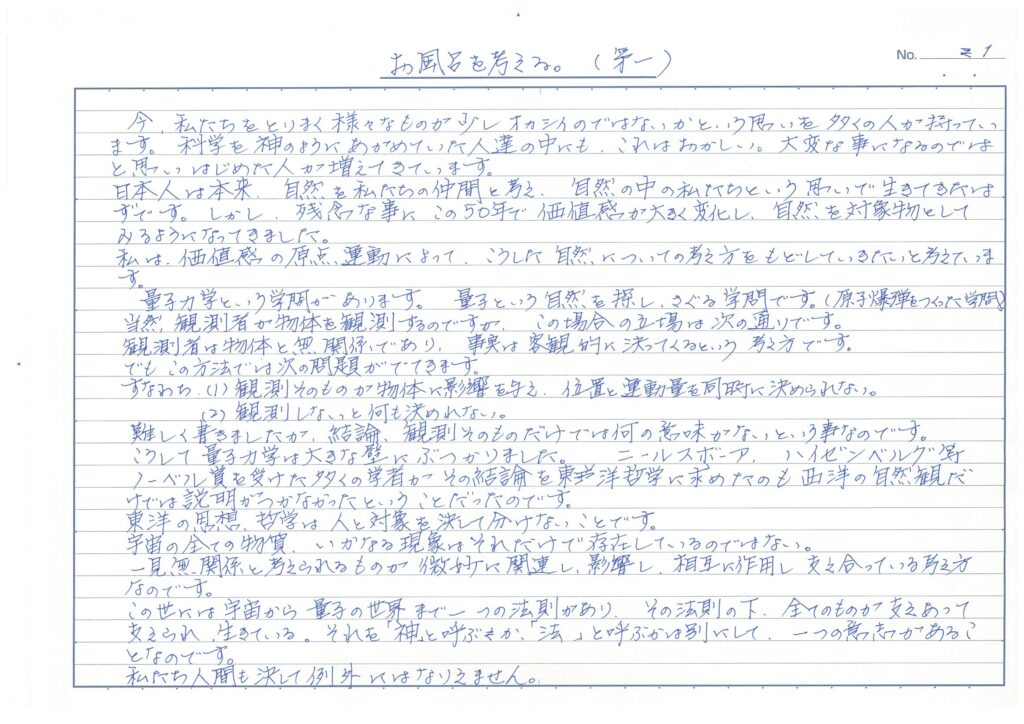 お風呂を考える。(第一)
No. 21
今、私たちをとりまく様々なものが少しオカシイのではないかという思いを多くの人が持ってい
ます。科学を神のようにあがめていた人達の中にも、これはおかしい。大変な事になるのでは
と思いはじめた人が増えてきています。
日本人は本来、自然を私たちの仲間と考え、自然の中の私たちという思いで生きてきたは
ずです。しかし、残念な事にこの50年で価値感が大きく変化し、自然を対象物として
みるようになってきました。
私は、価値感の原点運動によって、こうした自然についての考え方をもどしていきたいと考えていま
す。
量子力学という学問があります。量子という自然を探し、さぐる学問です。(原子爆弾をつくった学問)
当然、観測者が物体を観測するのですが、この場合の立場は次の通りです。
観測者は物体と無関係であり、事実は客観的に決ってくるという考え方です。
でもこの方法では次の問題がでてきます。
すなわち、(1)観測そのものが物体に影響を与え、位置と運動量を同時に決められない。
(2)観測しないと何も決めれない。
難しく書きましたが、結論、観測そのものだけでは何の意味がないという事なのです。
こうして量子力学は大きな壁にぶつかりました。ニールスボーア、ハイゼンベルグ等
ノーベル賞を受けた多くの学者がその結論を東洋哲学に求めたのも西洋の自然観だ
けでは説明がつかなかったということだったのです。
東洋の思想、哲学は人と対象を決して分けないことです。
宇宙の全ての物質、いかなる現象はそれだけで存在しているのではない。
一見無関係と考えられるものが微妙に関連し、影響し、相互に作用し支え合っている考え方
なのです。
この世には宇宙から量子の世界まで一つの法則があり、その法則の下、全てのものが支えあって
支えられ、生きている。それを「神」と呼ぶか、「法」と呼ぶかは別にして、一つの意志があるこ
となのです。
私たち人間も決して例外にはなりえません。